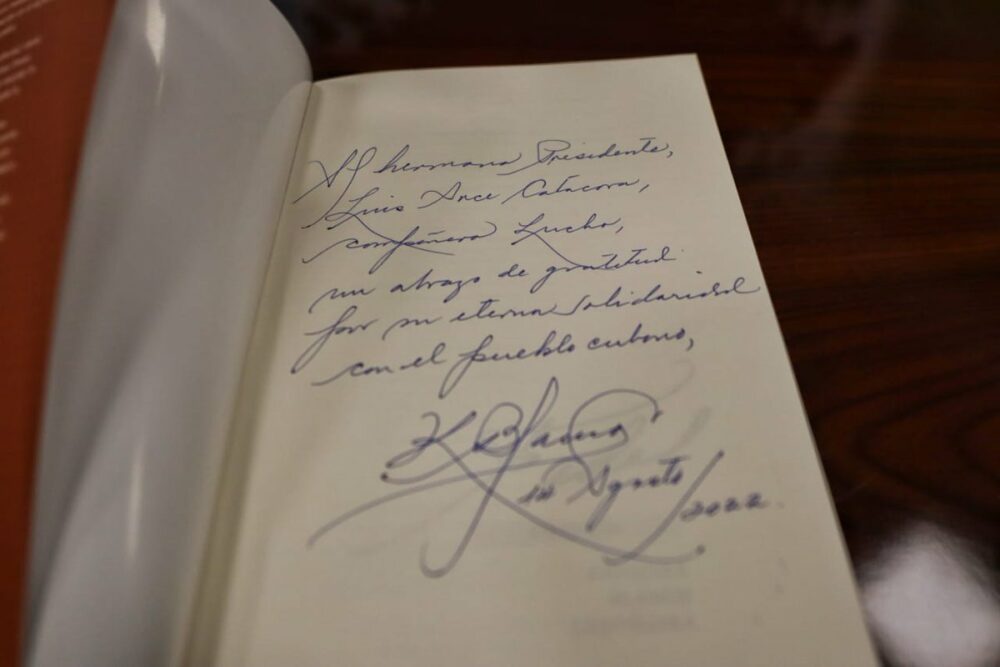 Al hermano Presidente,
Luis Arce Catacora,
compañero Lucho,
un abrazo de gratitud
por su eterna solidaridad
con el pueblo cubano,
Agosto/2022